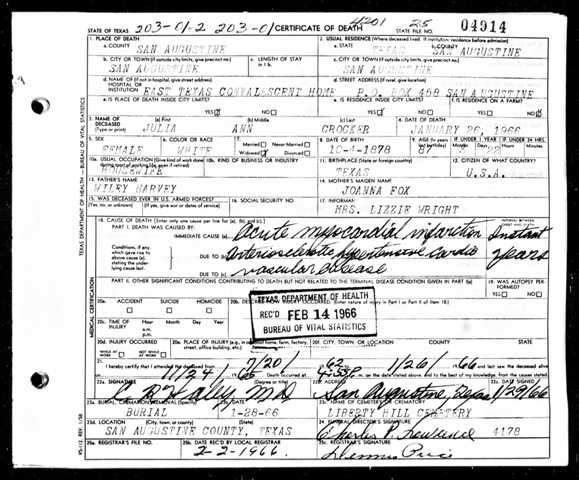 203-01-2 203-01 4201 25
STATE OF TEXAS CERTIFICATE OF DEATH STATE FILE NO. 04914
1. PLACE OF DEATH 2. USUAL RESIDENCE (Where deceased lived. If institution: residence before admission)
a. COUNTY SAN AUGUSTINE a. STATE TEXAS b. COUNTY SAN AUGUSTINE
b. CITY OR TOWN (If outside city limits, give precinct no.) c. LENGTH OF STAY in 1 b. c. CITY OR TOWN (If outside city limits, give precinct no.)
SAN AUGUSTINE SAN AUGUSTINE
d. NAME OF (If not in hospital, give street address) HOSPITAL OR INSTITUTION d. STREET ADDRESS (If rural, give location)
EAST TEXAS CONVALESCENT HOME P.O. BOX 458 SAN AUGUSTINE
e. IS PLACE OF DEATH INSIDE CITY LIMITS? YES NO e. IS RESIDENCE INSIDE CITY LIMITS? YES NO f. IS RESIDENCE ON A FARM? YES NO
3. NAME OF DECEASED (Type or print) (a) First (b) Middle (c) Last 4. DATE OF DEATH
JULIA ANN CROCKER JANUARY 26, 1966
5. SEX 6. COLOR OR RACE 7. Married Never Married Widowed Divorced 8. DATE OF BIRTH 9. AGE IF UNDER 1 YEAR IF UNDER 24 HRS.
FEMALE WHITE 10-4-1878 87
10a. USUAL OCCUPATION (Give kind of work done during most of working life, even if retired) 10b. KIND OF BUSINESS OR INDUSTRY 11. BIRTHPLACE (State or foreign country) 12. CITIZEN OF WHAT COUNTRY?
HOUSEWIFE TEXAS U.S.A.
13. FATHER'S NAME 14. MOTHER'S MAIDEN NAME
WILEY HARVEY JOANNA FOX
15. WAS DECEASED EVER IN U.S. ARMED FORCES? (Yes, no, or unknown) (If yes, give war or dates of service) 16. SOCIAL SECURITY NO. 17. INFORMANT
MRS. LIZZIE WRIGHT
18. CAUSE OF DEATH [Enter only one cause per line for (a), (b), and (c).] INTERVAL BETWEEN ONSET AND DEATH
PART I. DEATH WAS CAUSED BY:
IMMEDIATE CAUSE (a) Acute myocardial infarction Instant
Conditions, if any, which gave rise to above cause (a), stating the underlying cause last. DUE TO (b) Arteriosclerotic hypertensive cardio years
DUE TO (c) vascular disease
PART II. OTHER SIGNIFICANT CONDITIONS CONTRIBUTING TO DEATH BUT NOT RELATED TO THE TERMINAL DISEASE CONDITION GIVEN IN PART I(a) 19. WAS AUTOPSY PERFORMED? YES NO
20a. ACCIDENT SUICIDE HOMICIDE 20b. DESCRIBE HOW INJURY OCCURRED. (Enter nature of injury in Part I or Part II of item 18.)
TEXAS DEPARTMENT OF HEALTH
REC'D FEB 14 1966
BUREAU OF VITAL STATISTICS
20c. TIME OF INJURY Hour Month Day Year a.m. p.m.
20d. INJURY OCCURRED WHILE AT WORK NOT WHILE AT WORK 20e. PLACE OF INJURY (e.g., in or about home, farm, factory, street, office building, etc.) 20f. CITY, TOWN, OR LOCATION COUNTY STATE
21. I hereby certify that I attended the deceased from 7/20/ 62 1/26/ 66 and last saw the deceased alive
1/24 Death occurred at m. on the date stated above, and to the best of my knowledge, from the causes stated.
22a. SIGNATURE (Degree or title) 22b. ADDRESS 22c. DATE SIGNED
MD San Augustine, Texas 1/29/66
23a. BURIAL, CREMATION, REMOVAL (Specify) 23b. DATE 23c. NAME OF CEMETERY OR CREMATORY
BURIAL 1-28-66 LIBERTY HILL CEMETERY
23d. LOCATION (City, town, or county) (State) 24. FUNERAL DIRECTOR'S SIGNATURE
SAN AUGUSTINE COUNTY, TEXAS Charles 4178
25a. REGISTRAR'S FILE NO. 25b. DATE REC'D BY LOCAL REGISTRAR 25c. REGISTRAR'S SIGNATURE
2-2-1966
TEXAS DEPARTMENT OF HEALTH — BUREAU OF VITAL STATISTICS
MEDICAL CERTIFICATION
VS-112 REV. 1/58